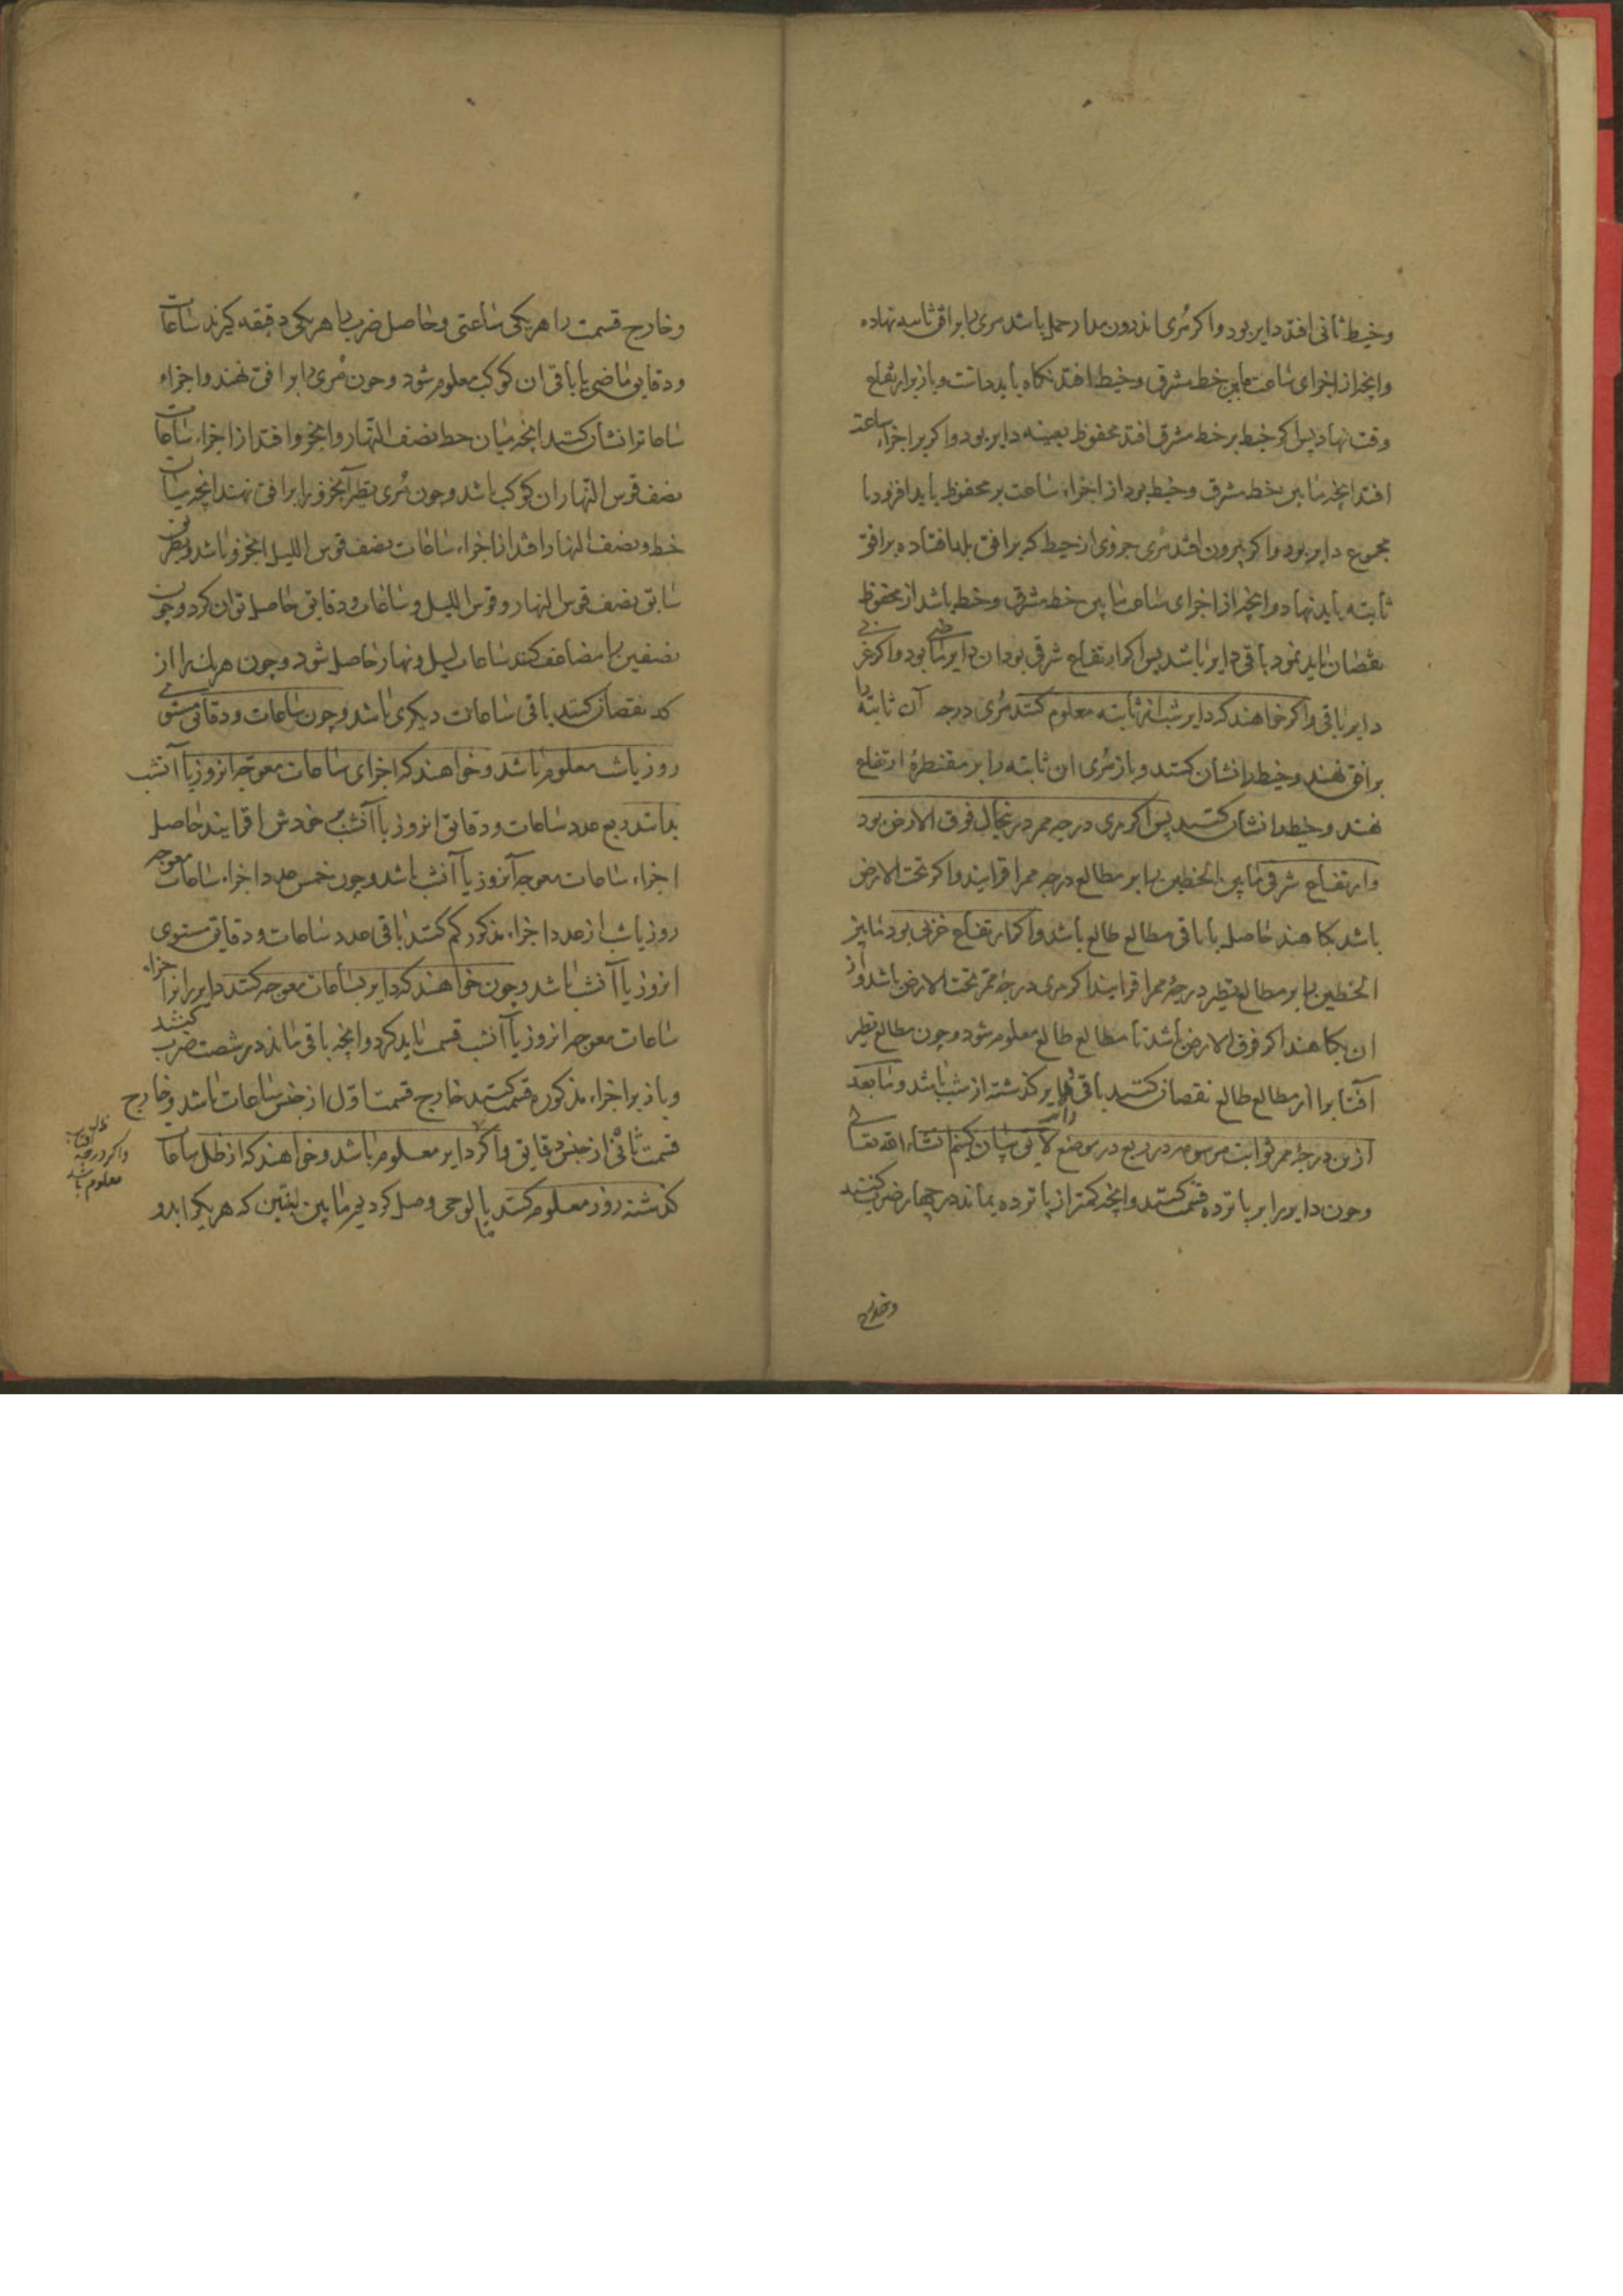 وخیط ثانی افتد دایر بود واکر مُری اندرون مدار حمل باشد مری را بر افق ثابته نهاده
وانچه از اجزای ساعت مابین خط مشرق وخیط افتد نکاه باید داشت وباز بر ارتفاع
وقت نهاد پس اکر خیط بر خط مشرق افتد محفوظ بعینه دایر بود واکر بر اجزاء ساعت
افتد انچه مابین خط مشرق وخیط بود از اجزاء ساعت بر محفوظ باید افزود تا
مجموع دایر بود واکر بیرون افتد مری جزوی از خیط که بر افق بلد افتاده بر افق
ثابته باید نهاد وانچه از اجزای ساعت مابین خط مشرق وخیط باشد از محفوظ
نقصان باید نمود باقی دایر باشد پس اکر ارتفاع شرقی بود ان دایر ماضی بود واکر غربی
دایر باقی واکر خواهند که دایر شب از ثابته معلوم کنند مُری درجه آن ثابته را
بر افق نهند وخیط را نشان کنند وباز مُری ان ثابته را بر مقنطرهٔ ارتفاع
نهند وخیط را نشان کنند پس اکر مری درجه ممر در نحال فوق الارض بود
وارتفاع شرقی مابین الخطین را بر مطالع درجه ممر افزایند واکر تحت الارض
باشد بکاهند حاصل یا باقی مطالع طالع باشد واکر ارتفاع غربی بود مابین
الخطین را بر مطالع نظیر درجهٔ ممر افزایند اکر مری درجه ممر تحت الارض باشد واز
ان بکاهند اکر فوق الارض باشد تا مطالع طالع معلوم شود وچون مطالع نظیر
آفتاب را از مطالع طالع نقصان کنند باقی دایر کذشته از شب باشد وما بعد
ازین درجهٔ ممر ثوابت مرسومه در ربع در موضع لایق بیان کنیم انشاء الله تعالی
وچون دایر را بر پانزده قسمت کنند وانچه کمتر از پانزده بماند در چهار ضرب کنند
وخارج
وخارج قسمت را هر یکی ساعتی وحاصل ضرب را هر یکی دقیقه کیرند ساعات
ودقایق ماضی یا باقی ان کوکب معلوم شود وچون مُری را بر افق نهند واجزاء
ساعات را نشان کنند انچه میان خط نصف النهار وانجزو افتد از اجزاء ساعات
نصف قوس النهار ان کوکب باشد وچون مُری نظیر آنجزو را بر افق نهند انچه میان
خط ونصف النهار افتد از اجزاء ساعات نصف قوس اللیل انجزو باشد وبطریق
سابق نصف قوس النهار وقوس اللیل وساعات ودقایق حاصل توان کرد وچون
نصفین را مضاعف کنند ساعات لیل ونهار حاصل شود وچون هر یک را از
کد نقصان کنند باقی ساعات دیکری باشد وچون ساعات ودقائق مستوی
روز یا شب معلوم باشد وخواهند که اجزای ساعات معوجه انروز یا آنشب
بدانند ربع عدد ساعات ودقائق انروز یا آنشب بر خودش افزایند حاصل
اجزاء ساعات معوجه آنروز یا آنشب باشد وچون خمس عدد اجزاء ساعات معوجه
روز یا شب از عدد اجزاء مذکور کم کنند باقی عدد ساعات ودقایق مستوی
انروز یا آنشب باشد وچون خواهند که دایر بساعات معوجه کنند دایر را بر اجزاء
ساعات معوجه انروز یا آنشب قسمت باید کرد وانچه باقی ماند در شصت ضرب کنند
وباز بر اجزاء مذکوره قسمت کنند خارج قسمت اول از جنس ساعات باشد وخارج
قسمت ثانی از جنس دقایق واکر دایر معلوم باشد وخواهند که از ظل ساعات
کذشته روز معلوم کنند با لوحی وصل کرد بر مابین لبنتین که هر یکرا بدو
واکر درجه
آفتاب
معلوم باشد